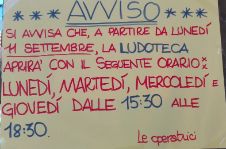 *** AVVISO ***
SI AVVISA CHE, A PARTIRE DA LUNEDÍ
11 SETTEMBRE, LA LUDOTECA
APRIRA' CON IL SEGUENTE ORARIO:
LUNEDÍ, MARTEDÍ, MERCOLEDÍ E
GIOVEDÍ DALLE 15:30 ALLE
18:30.
Le operatrici